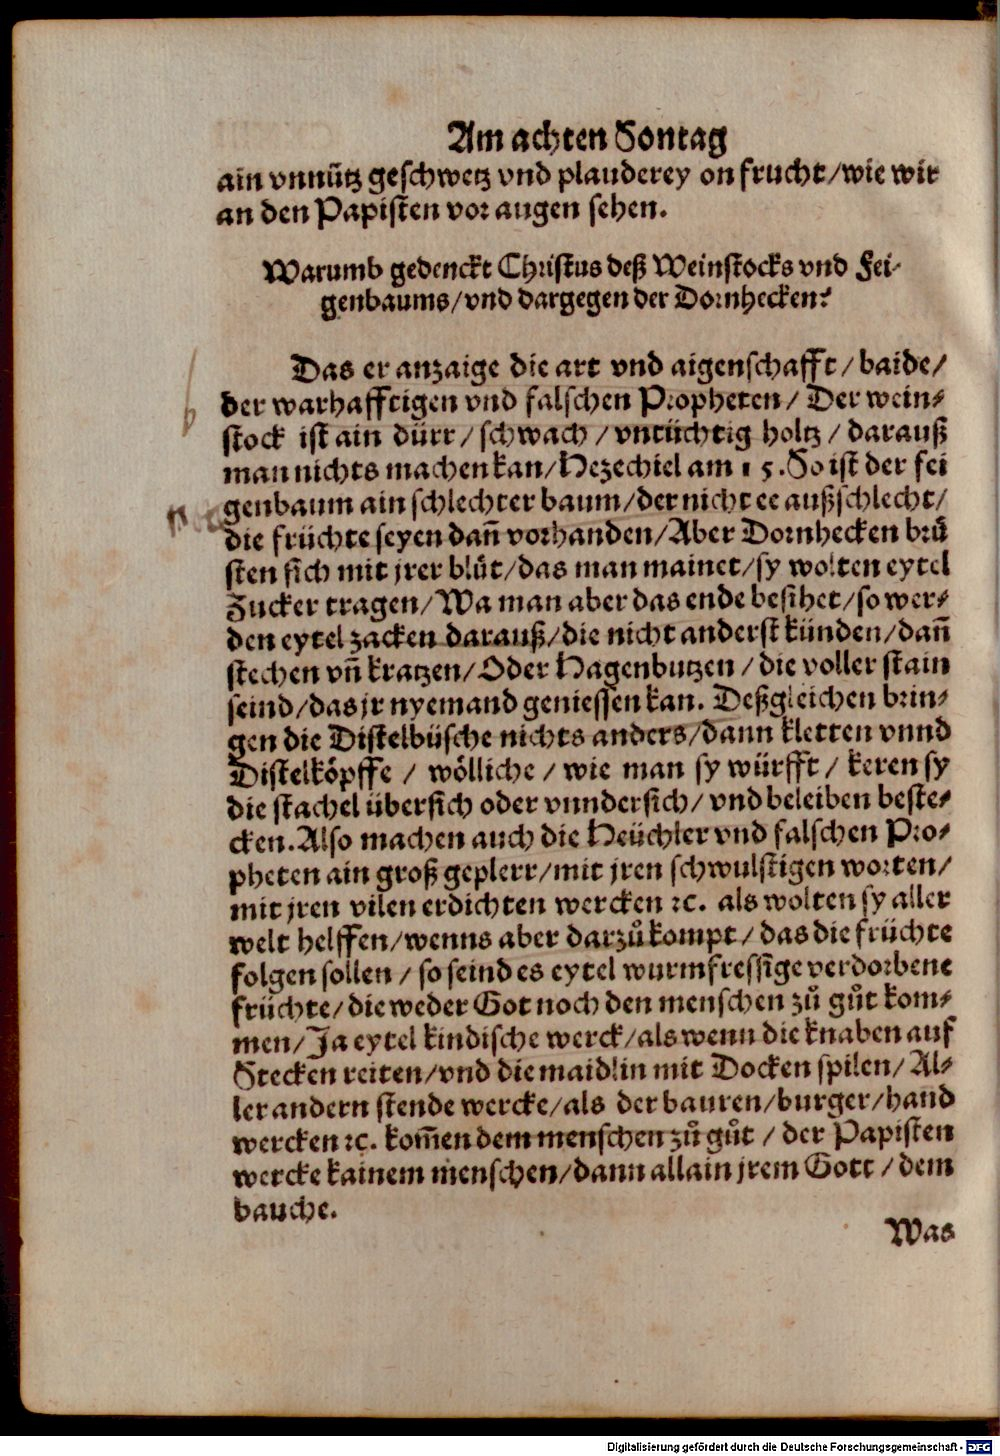 Am achten Sontag
ain vnnütz geschwetz vnd plauderey on frucht/wie wir
an den Papisten vor augen sehen.
Warumb gedenckt Christus deß Weinstocks vnd Fei-
genbaums/vnd dargegen der Dornhecken?
Das er anzaige die art vnd aigenschafft/baide/
der warhafftigen vnd falschen Propheten/ Der wein-
stock ist ain dürr/schwach/vntüchtig holtz/darauß
man nichts machen kan/Hezechiel am 15. So ist der fei
genbaum ain schlechter baum/der nicht ee außschlecht/
die früchte seyen dañ vorhanden/Aber Dornhecken brü
sten sich mit jrer blüt/das man mainet/sy wolten eytel
Zucker tragen/Wa man aber das ende besihet/so wer-
den eytel zacken darauß/die nicht anderst künden/dañ
stechen vñ kratzen/Oder Hagenbutzen/die voller stain
seind/das jr nyemand geniessen kan. Deßgleichen brin-
gen die Distelbüsche nichts anders/dann kletten vnnd
Distelköpffe/ wölliche/wie man sy würfft/keren sy
die stachel übersich oder vnndersich/vnd beleiben beste-
cken. Also machen auch die Heüchler vnd falschen Pro-
pheten ain groß geplerr/mit jren schwulstigen worten/
mit jren vilen erdichten wercken ꝛc. als wolten sy aller
welt helffen/wenns aber darzů kompt/das die früchte
folgen sollen/so seind es eytel wurmfressige verdorbene
früchte/die weder Got noch den menschen zů gůt kom-
men/Ja eytel kindische werck/als wenn die knaben auf
Stecken reiten/vnd die maidlin mit Docken spilen/Al-
ler andern stende wercke/als der bauren/burger/hand
wercken ꝛc. kom̃en dem menschen zů gůt/der Papisten
wercke kainem menschen/dann allain jrem Gott/dem
bauche.
Was
Digitalisierung gefördert durch die Deutsche Forschungsgemeinschaft - DFG